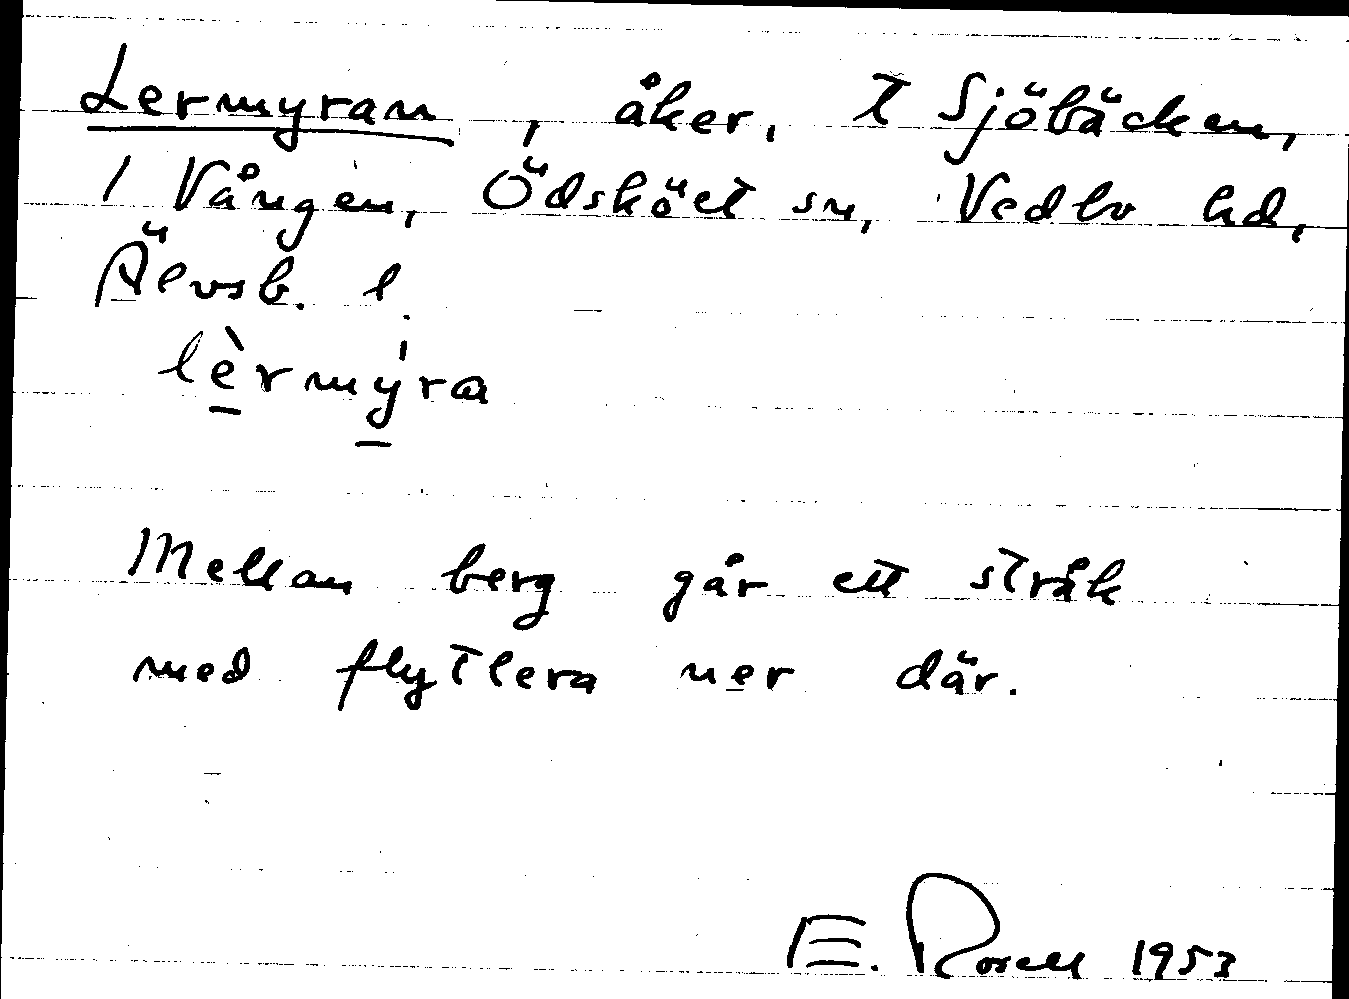 Lermyran, åker, t Sjöbäcken,
1 Vången, Ödsköet sn, Vedbo hd,
Älvsb. l.
lèrmýra
Mellan berg går ett stråk
med flytlera ner där.
E. Rosell 1953